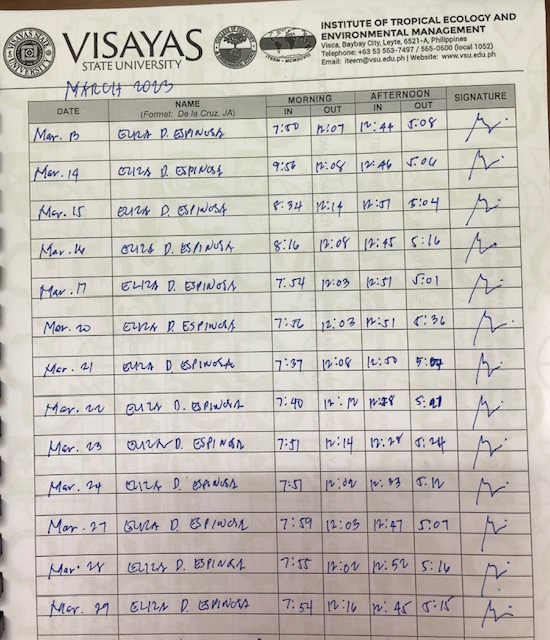 VISAYAS
STATE UNIVERSITY
INSTITUTE OF TROPICAL ECOLOGY AND
ENVIRONMENTAL MANAGEMENT
Visca, Baybay City, Leyte, 6521-A, Philippines
Telephone: +63 53 563-7497 / 565-0600 (local 1052)
Email: iteem@vsu.edu.ph | Website: www.vsu.edu.ph
MARCH 2023
DATE NAME (Format: De la Cruz, JA) MORNING IN OUT AFTERNOON IN OUT SIGNATURE
Mar. 13 ELIZA D. ESPINOSA 7:50 12:07 12:44 5:08
Mar. 14 ELIZA D. ESPINOSA 9:56 12:08 12:46 5:06
Mar. 15 ELIZA D. ESPINOSA 8:34 12:14 12:51 5:04
Mar. 16 ELIZA D. ESPINOSA 8:16 12:08 12:45 5:16
Mar. 17 ELIZA D. ESPINOSA 7:54 12:03 12:51 5:01
Mar. 20 ELIZA D. ESPINOSA 7:56 12:03 12:51 5:36
Mar. 21 ELIZA D. ESPINOSA 7:37 12:08 12:50
Mar. 22 ELIZA D. ESPINOSA 7:40 12:12
Mar. 23 ELIZA D. ESPINOSA 7:51 12:14 12:28 5:24
Mar. 24 ELIZA D. ESPINOSA 7:51 12:02 12:33 5:12
Mar. 27 ELIZA D. ESPINOSA 7:59 12:03 12:47 5:07
Mar. 28 ELIZA D. ESPINOSA 7:55 12:02 12:52 5:16
Mar. 29 ELIZA D. ESPINOSA 7:54 12:16 12:45 5:15